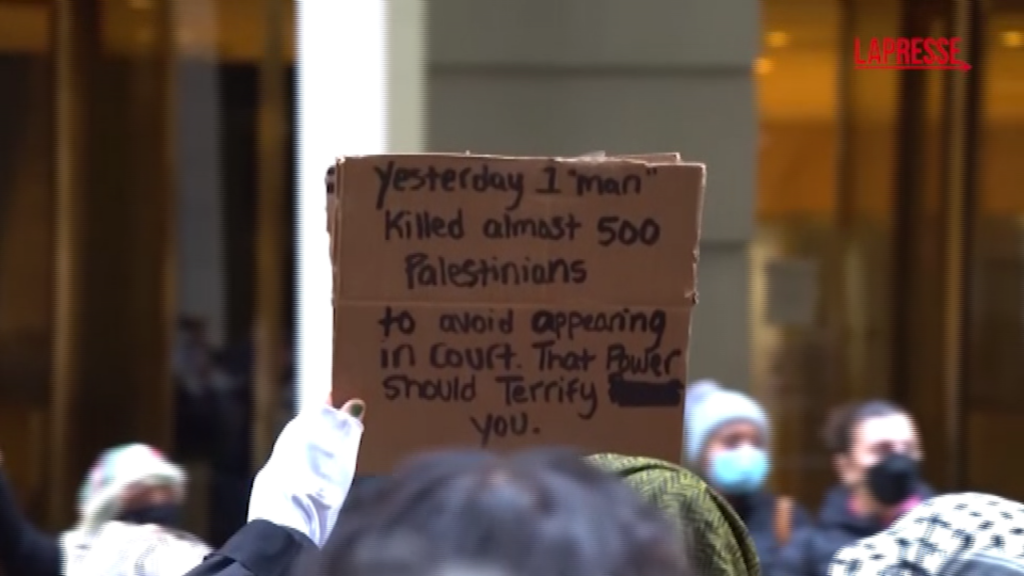 LAPRESSE
Yesterday 1 "man"
Killed almost 500
Palestinians
to avoid appearing
in court. That Power
should Terrify
you.